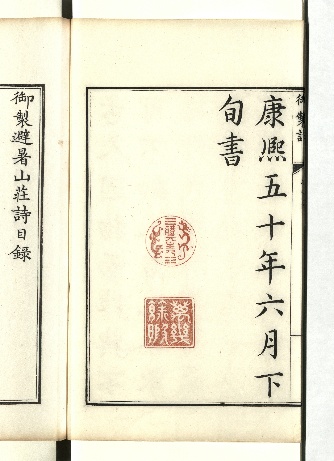 御製詩
康熙五十年六月下
旬書
萬幾餘暇
御製避暑山莊詩目錄